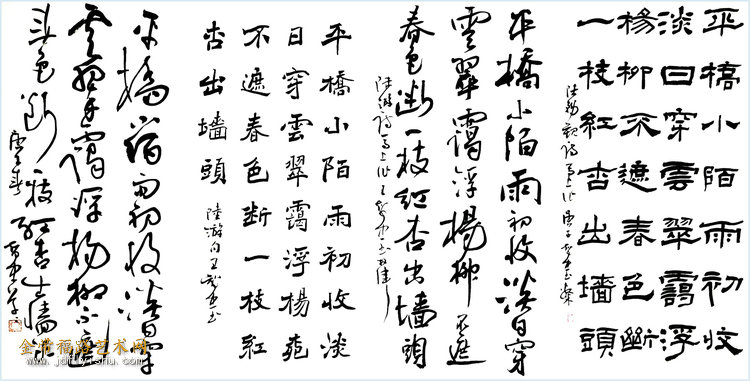 平橋小陌雨初收
淡日穿雲翠靄浮
楊柳不遮春色斷
一枝紅杏出墻頭
平橋小陌雨初收淡日穿
雲翠靄浮楊柳不遮
春色断一枝红杏出墙頭
陸游詩馬上作
平橋小陌雨初收淡
日穿雲翠靄浮楊柳
不遮春色断一枝紅
杏出墻頭
陸游句
平橋小陌雨初收淡日穿
雲翠靄浮楊柳不遮
春色断一枝红杏出墙頭
金带福路艺术网
www.jdflyishu.com